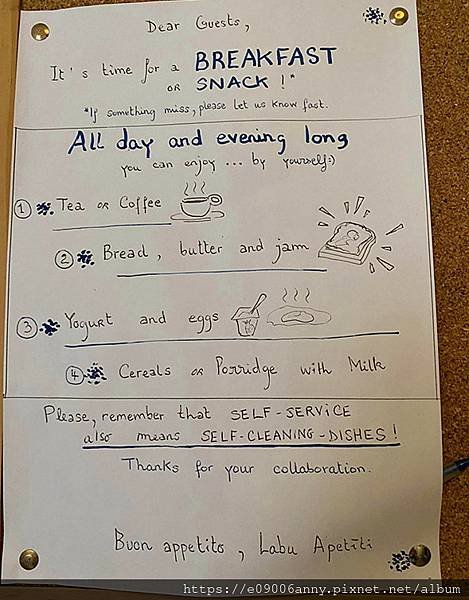 Dear Guests,
It's time for a BREAKFAST
OR SNACK !*
*If something miss, please let us know fast.
All day and evening long
you can enjoy ... by yourself:)
① Tea OR Coffee
② Bread, butter and jam
③ Yogurt and eggs
④ Cereals OR Porridge with Milk
Please, remember that SELF-SERVICE
also means SELF-CLEANING-DISHES!
Thanks for your collaboration.
Buon appetito, Labu Apetīti
https://e09006anny.pixnet.net/album